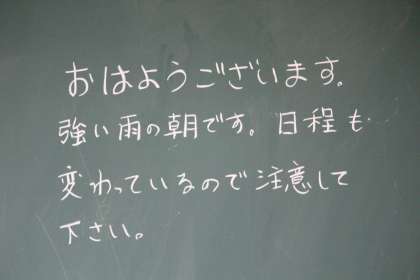 おはようございます。
強い雨の朝です。日程も
変わっているので注意して
下さい。